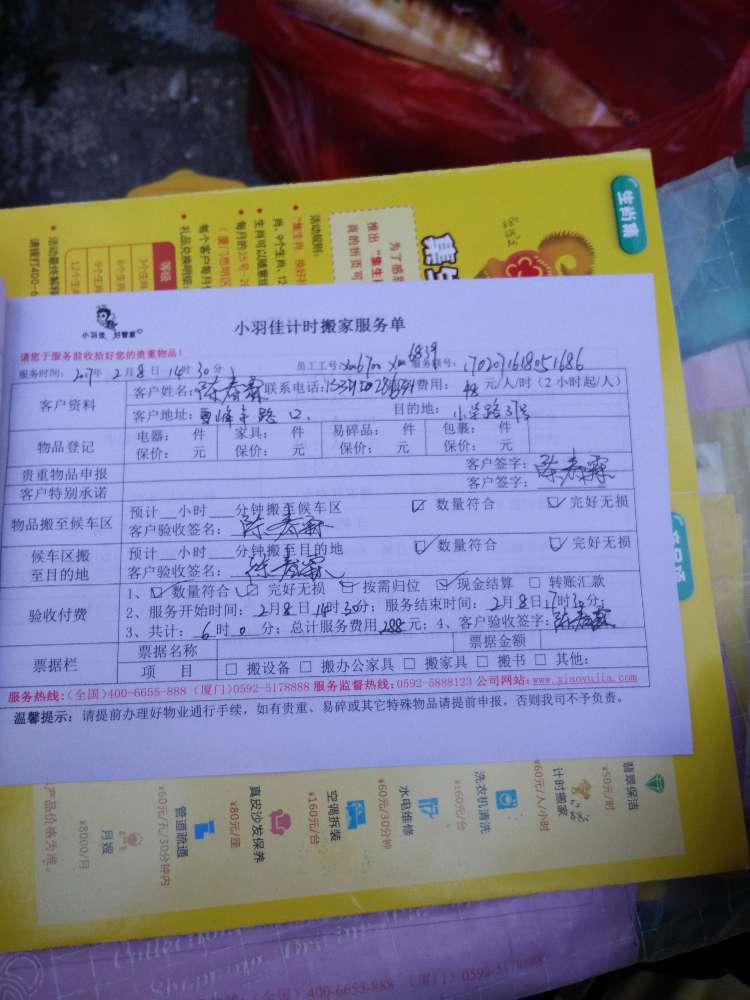 生肖集
活动规则:
请拨打400-6
小羽佳 好管家
小羽佳计时搬家服务单
请您于服务前收拾好您的贵重物品!
服务时间: 2017年 2月8日 14时30分
员工工号: 服务单号: 1702071618051686
客户资料
客户姓名: 陈春霖 联系电话: 费用: 48 元/人/时 (2小时起/人)
客户地址: 目的地: 小学路
物品登记
电器: 件 家具: 件 易碎品: 件 包裹: 件
保价: 元 保价: 元 保价: 元 保价: 元
贵重物品申报 客户签字: 陈春霖
客户特别承诺 客户签字: 陈春霖
物品搬至候车区
预计 小时 分钟搬至候车区 ☑ 数量符合 ☑ 完好无损
客户验收签名: 陈春霖
候车区搬至目的地
预计 小时 分钟搬至目的地 ☑ 数量符合 ☑ 完好无损
客户验收签名: 陈春霖
验收付费
1、☑ 数量符合 ☑ 完好无损 按需归位 ☑ 现金结算 □ 转账汇款
2、服务开始时间: 2月8日14时30分; 服务结束时间: 2月8日17时30分;
3、共计: 6时0分; 总计服务费用288元; 4、客户验收签字: 陈春霖
票据栏
票据名称 票据金额
项 目 □ 搬设备 □ 搬办公家具 □ 搬家具 □ 搬书 □ 其他:
服务热线:(全国)400-6655-888 (厦门)0592-5178888 服务监督热线:0592-5888123 公司网站:www.xiaoyujia.com
温馨提示: 请提前办理好物业通行手续, 如有贵重、易碎或其它特殊物品请提前申报, 否则我司不予负责。
翡翠保洁
¥50元/时
计时搬家
¥60元/人/小时
洗衣机清洗
¥160元/台
水电维修
¥60元/30分钟
空调拆装
¥160元/台
真皮沙发保养
¥80元/座
管道疏通
¥60元/元/30分钟内
月嫂
¥8000/月
产品价格为准。
(全国) 400-6653-888 (厦门) 0592-5178888